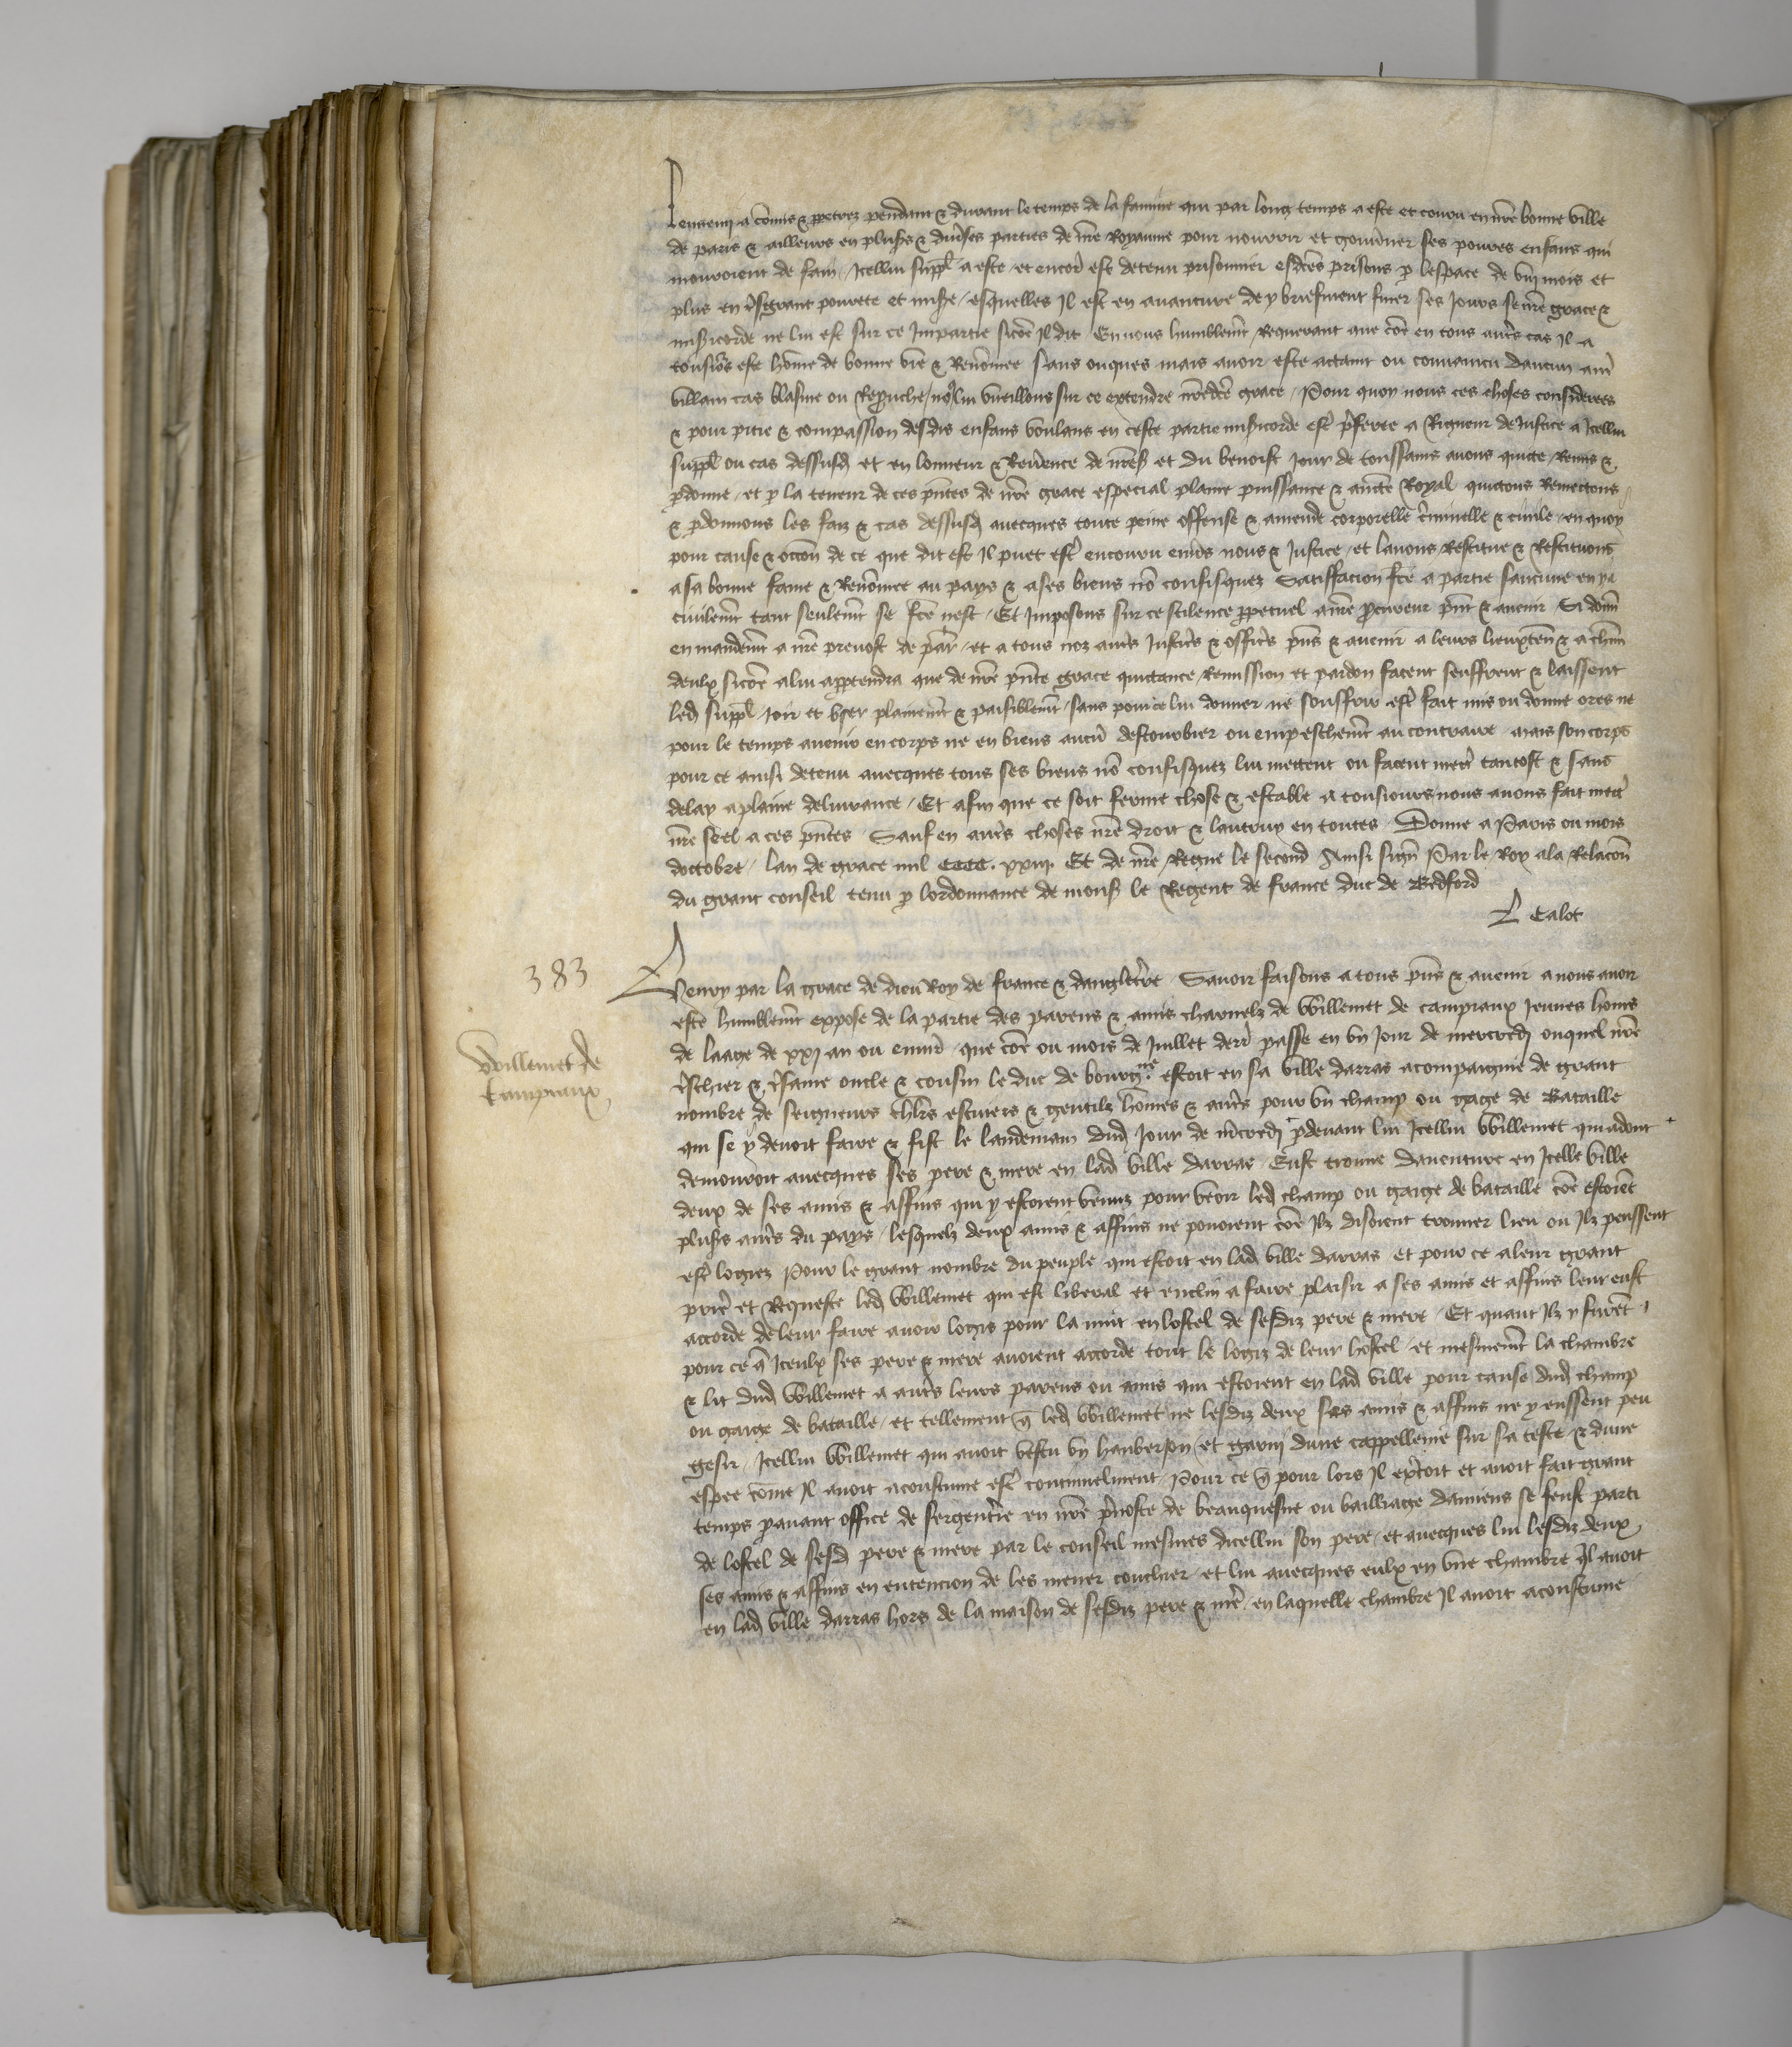 lensein a cōmis & ꝑpetrez pendant & durant le temps de la famine qui par long temps a este et couru en nr̄e bonne ville
de paris & ailleurs en plus̄s & diu̾ses parties de nr̄e Royaume pour nourrir et gouu̾ner ses poures enfans qui
mouroient de fain / Icellui suppl̄ a este / et encor̄ est detenu prisonnier esdc̄es prisons ꝑ lespace de viij mois et
plus en tr̄sgrant pourete et mis̄e / esquelles Il est en auanture de y briefment finer ses Jours se nr̄e grace &
mis̄icorde ne lui est sur ce Impartie sicōe Il dit En nous humblemt̄ Requerant que cōe en tous autr̄s cas Il a
tousio̾s este hōme de bonne vie & Renōmee sans onques mais auoir este actaint ou conuaincu daucun autr̄
villain cas blasme ou Reprouche / no9 lui vueillons sur ce extendre nr̄edc̄e grace / Pour quoy nous ces choses considerees
& pour pitie & compassion desdis enfans voulans en ceste partie mis̄icorde estr̄ p̄feree a Rigueur de Justice a Icellui
suppl̄ ou cas dessusd et en lonneur & Reu̾ence de nr̄es̄ et du benoist Jour de toussains auons quicte / Remis &
ꝑdonne / et ꝑ la teneur de ces pn̄tes de nr̄e grace especial plaine puissance & auctē Royal quictons Remectons
& ꝑdonnons les faiz & cas dessusd auecques toute peine offense & amende corporelle cr̄iminelle & ciuile / en quoy
pour cause & occōn de ce que dit est Il puet estr̄ encouru enu̾s nous & Justice / et lauons Restitue & Restituons
a sa bonne fame & Renōmee au pays & a ses biens nō confisquez Satisfacion fc̄e a partie saucune en ya
ciuilemt̄ tant seulemt̄ se fc̄e nest / Et Imposons sur ce scilence ꝑpetuel a nr̄e ꝓcureur pn̄t & auenir Si donn̄
en mandemt̄ a nr̄e preuost de par̄ / et a tous noz autr̄s Justic̄s & offic̄s pn̄s & auenir a leurs lieuxten̄ & a chūn
deulx sicōe a lui apꝑtendra que de nr̄e pn̄te grace quictance Remission et pardon facent seuffrent & laissent
led suppl̄ Joir et vser plainemt̄ & paisiblemt̄ / sans pour ce lui donner ne souffrir estr̄ fait mis ou donne ores ne
pour le temps auenir en corps ne en biens aucū destourbier ou empeschemt̄ au contraire mais son corps
pour ce ainsi detenu auecques tous ses biens nō confisquez lui mettent ou facent mett̄ tantost & sans
delay a plaine deliurance / Et afin que ce soit ferme chose & estable a tousiours nous auons fait mett̄
nr̄e seel a ces pn̄tes Sauf en autr̄s choses nr̄e droit & lautruy en toutes Donne a Paris ou mois
doctobre / lan de grace mil cccc. xxiij. Et de nr̄e Regne le second Ainsi sign̄ Par le Roy a la Relacōn
du grant conseil tenu ꝑ lordonnance de mons̄ le Regent de france duc de Bedford
Calot
383
Henry par la grace de dieu Roy de france & dangletr̄re Sauoir faisons a tous pn̄s & auenir a nous auoir
este humblemt̄ expose de la partie des parens & amis charnelz de Willemet de campiaux Jeunes homs
Willemet de
Campiaux
de laage de xxj an ou enuir̄ / que cōe ou mois de Juillet derr̄ passe en vn Jour de mercredj ouquel nr̄e
tr̄schier & tr̄same oncle & cousin le duc de bourgne estoit en sa ville darras acompaigne de grant
nombre de seigneurs chl̄rs escuiers & gentilz hōmes & autr̄s pour vn champ ou gage de Bataille
qui se y deuoit faire & fist le landemain dud Jour de mercredj ꝑdeuant lui Icellui Willemet qui adont
demouroit auecques ses pere & mere en lad ville darras / Eust trouue dauenture en Icelle ville
deux de ses amis & affins qui y estoient venuz pour veoir led champ ou gaige de bataille cōe estoiēt
plus̄s autr̄s du pays / lesquelz deux amis & affins ne pouoient cōe Ilz disoient trouuer lieu ou Ilz peussent
estr̄ logiez Pour le grant nombre du peuple qui estoit en lad ville darras et pour ce a leur grant
prier̄ et Requeste led Willemet qui est liberal et enclin a faire plaisir a ses amis et affins leur eust
accorde de leur faire auoir logis pour la nuit en lostel de sesdiz pere & mere / Et quant Ilz y furēt
pour ce q̄ Iceulx ses pere & mere auoient accorde tout le logiz de leur hostel / et mesmemt̄ la chambre
& lit dud Willemet a autr̄s leurs parens ou amis qui estoient en lad ville pour cause dud champ
ou gaige de bataille / et tellement q̄ led Willemet ne lesdiz deux ses amis & affins ne y eussent peu
gesir / Icellui Willemet qui auoit vestu vn hauberjon / et garni dune cappelleine sur sa teste & dune
espee cōme Il auoit acoustume estr̄ continuelment / Pour ce q̄ pour lors Il exr̄coit et auoit fait grant
temps ꝑauant office de sergentr̄ie en nr̄e p̄uoste de beauquesne ou bailliage damiens se feust parti
de lostel de sesd pere & mere par le conseil mesmes dicellui son pere / et auecques lui lesdiz deux
ses amis & affins en entencion de les mener couchier et lui auecques eulx en vne chambre q̄l auoit
en lad ville darras hors de la maison de sesdiz pere & mer̄ / en laquelle chambre Il auoit acoustume